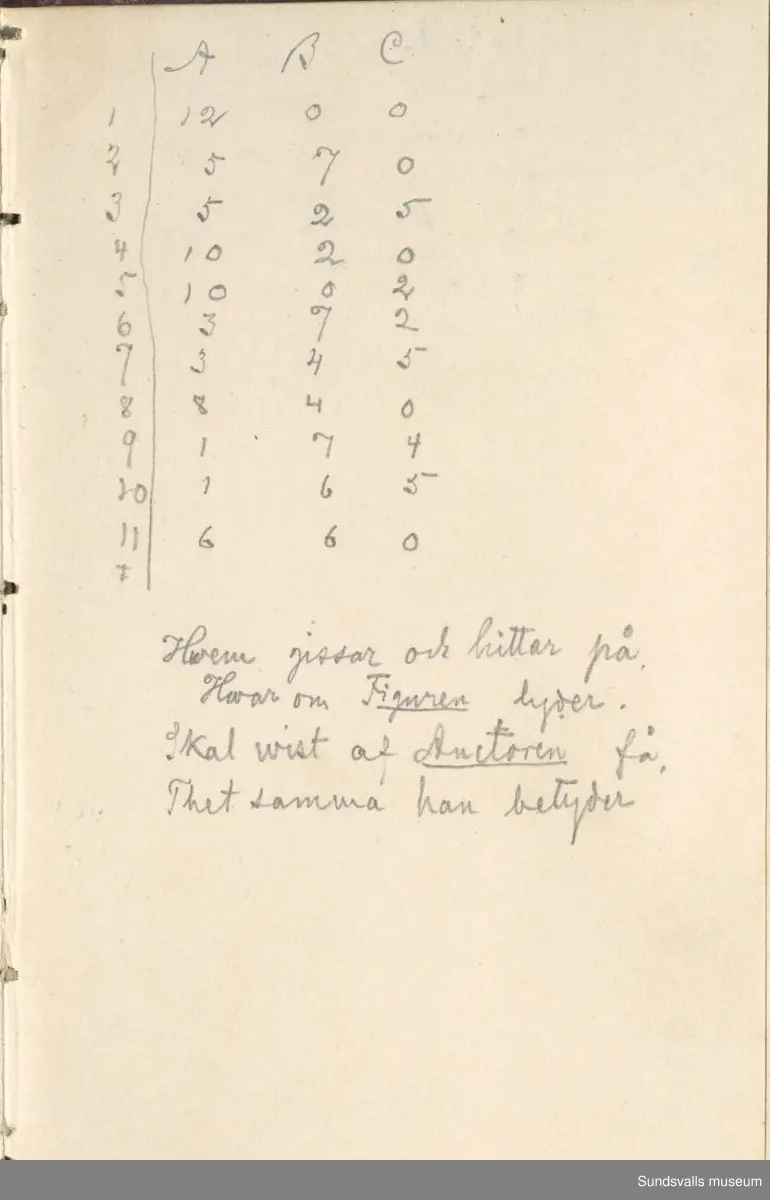 A B C
1 12 0 0
2 5 7 0
3 5 2 5
4 10 2 0
5 10 0 2
6 3 7 2
7 3 4 5
8 8 4 0
9 1 7 4
10 1 6 5
11 6 6 0
+
Hwem gissar och hittar på,
Hwar om Figuren lyder.
Skal wist af Auctoren få,
Thet samma han betyder
Sundsvalls museum